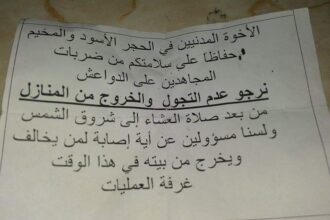 الأخوة المدنيين في الحجر الأسود والمخيم
حفاظا علي سلامتكم من ضربات
المجاهدين على الدواعش
نرجو عدم التجول والخروج من المنازل
من بعد صلاة العشاء إلى شروق الشمس
ولسنا مسؤولين عن أية إصابة لمن يخالف
ويخرج من بيته في هذا الوقت
غرفة العمليات